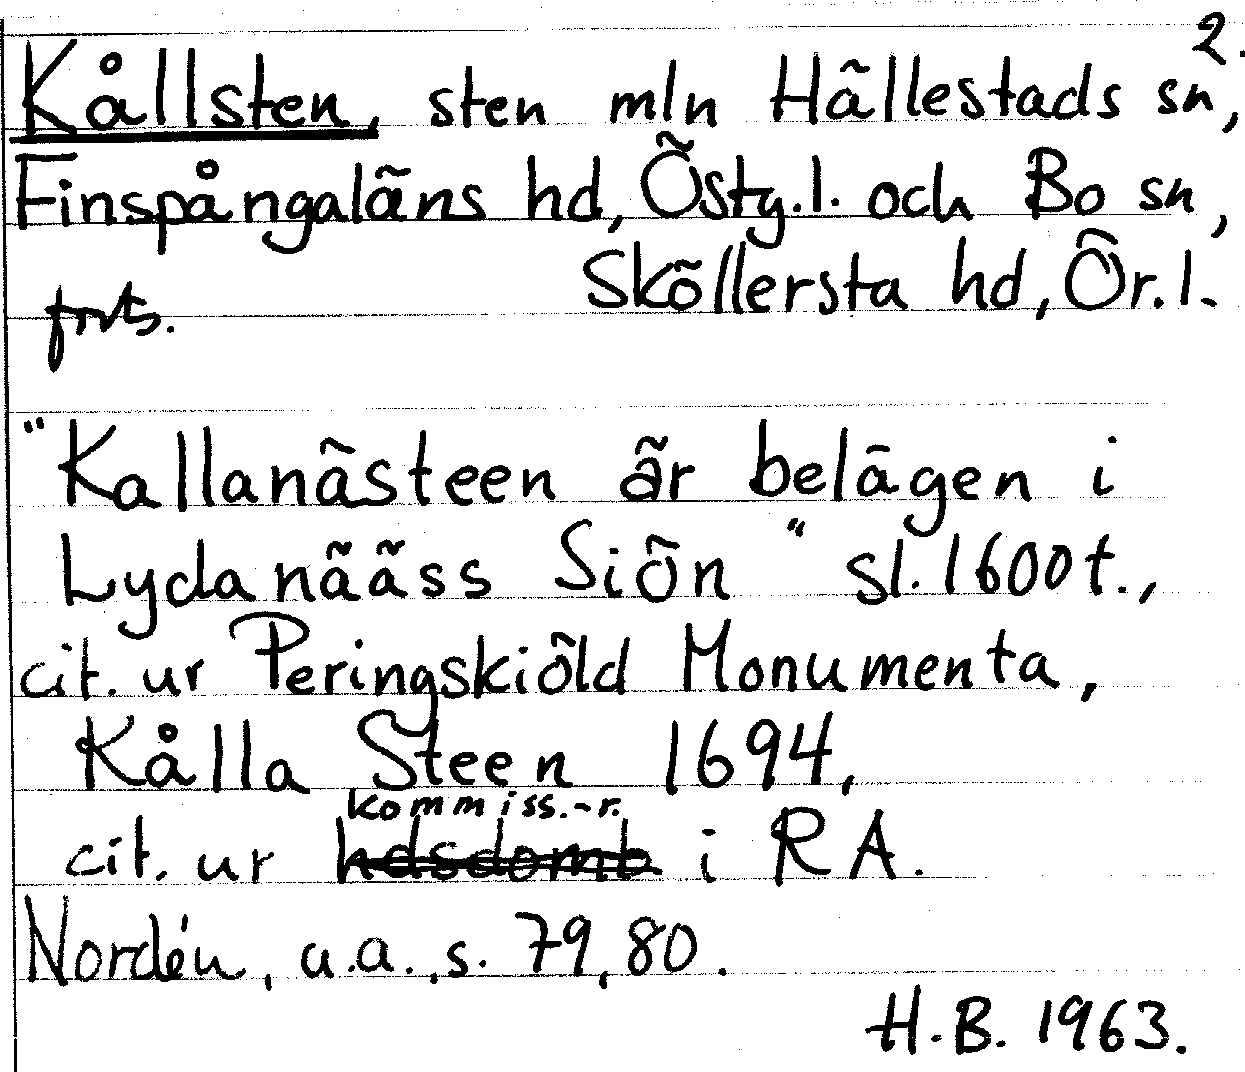 2.
Kållsten, sten mln Hällestads sn,
Finspångaläns hd, Östg.l. och Bo sn,
Sköllersta hd, Ör.l.
forts.
"Kallanästeen är belägen i
Lydanääss Siön" sl. 1600t.,
cit. ur Peringskiöld Monumenta,
Kålla Steen 1694,
kommiss.-r.
cit. ur hdsdomb i RA.
Nordén, a.a., s. 79, 80.
H.B. 1963.